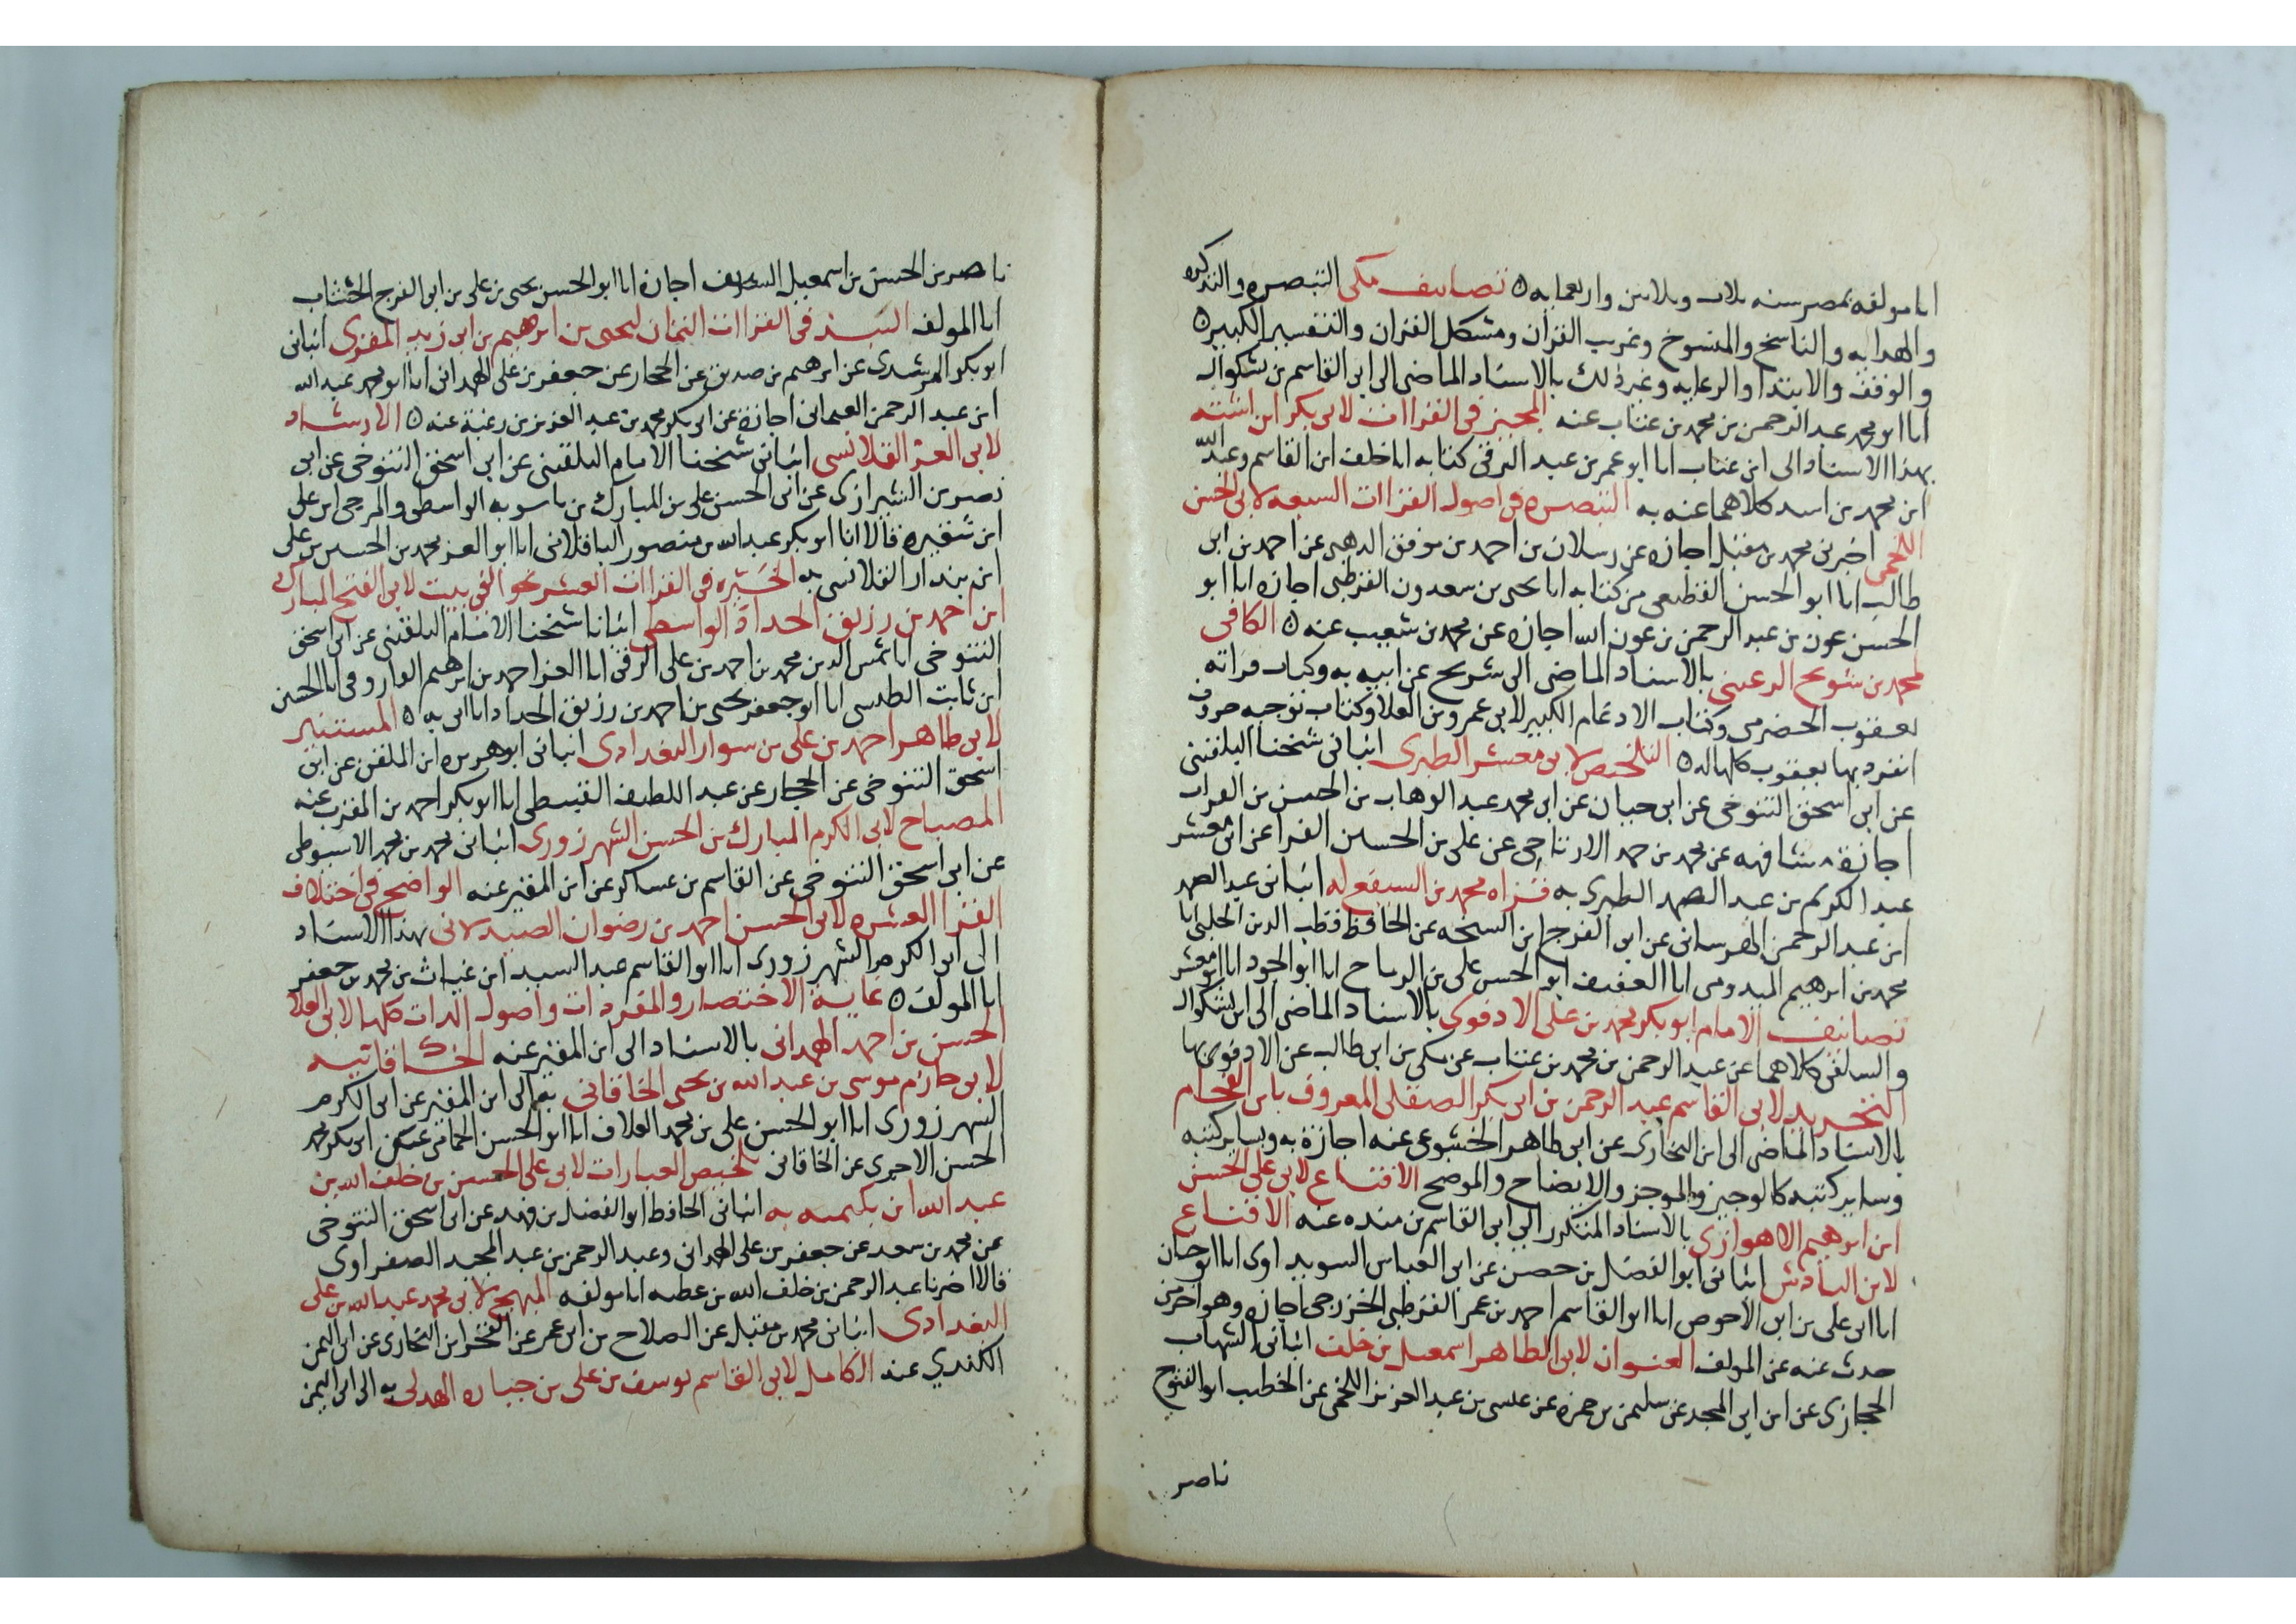 انا مولفه بمصر سنه ثلاث وثلاثين واربعمايه ه تصانيف مكي التبصره والتذكره
والهدايه والناسخ والمنسوخ وغريب القران ومشكل القران والتفسير الكبير ه
والوقف والابتدا والرعايه وغير ذلك بالاسناد الماضي الى ابي القاسم بن بشكوال
انا ابو محمد عبد الرحمن بن محمد بن عتاب عنه المجبز في القراات لابي بكر ابن اشته
بهذا الاسناد الى ابن عتاب انا ابو عمر بن عبد البر في كتابه انا خلف ابن القاسم وعبد الله
ابن محمد بن اسد كلاهما عنه به التبصره في اصول القراات السبعه لابي الحسن
اللخمي اخبرني محمد بن مقبل اجازه عن رسلان بن احمد بن موفق الذهبي عن احمد بن ابي
طالب انا ابو الحسن القطيعي من كتابه انا يحيى بن سعدون القرطبي اجازه انا ابو
الحسن عون بن عبد الرحمن بن عون الله اجازه عن محمد بن شعيب عنه ه الكافي
لمحمد بن شريح الرعيني بالاسناد الماضي الى شريح عن ابيه به وكتاب قراته
يعقوب الحضرمي وكتاب الادغام الكبير لابي عمرو بن العلا وكتاب توجيه حروف
انفرد بها يعقوب كلها له ه التلخيص لابي معشر الطبري انباني شيخنا البلقيني
عن ابي اسحق التنوخي عن ابي حيان عن ابي محمد عبد الوهاب بن الحسن بن الفرات
اجازة مشافهه عن محمد بن حمد الارتاحي عن علي بن الحسين الفرا عن ابي معشر
عبد الكريم بن عبد الصمد الطبري به قراه محمد بن السيفع له انباني عبد الصمد
ابن عبد الرحمن الهرساني عن ابي الفرج ابن الشيخه عن الحافظ قطب الدين الحلبي انا
محمد بن ابرهيم الميدومي انا العفيف ابو الحسن علي بن الرماح انا ابو الجود انا ابو معشر
تصانيف الامام ابو بكر محمد بن علي الادفوي بالاسناد الماضي الى ابن بشكوال
والسلفي كلاهما عن عبد الرحمن بن محمد بن عتاب عن مكي بن ابي طالب عن الادفوي بها
التجريد لابي القاسم عبد الرحمن بن ابي بكر الصقلي المعروف بابن الفحام
بالاسناد الماضي الى ابن البخاري عن ابي طاهر الخشوعي عنه اجازة به وبساير كتبه
وساير كتبه كالوجيز والموجز والايضاح والموضح الاقناع لابي علي الحسن
ابن ابرهيم الاهوازي بالاسناد المتكرر الى ابي القاسم بن منده عنه الاقناع
لابن الباذش انباني ابو الفضل بن حصن عن ابي العباس السويداوي انا ابو حيان
انا ابو علي بن ابي الاحوص انا ابو القاسم احمد بن عمر القرطبي الخزرجي اجازه وهو اخر من
حدث عنه عن المولف العنوان لابي الطاهر اسمعيل بن خلف انباني الشهاب
الحجازي عن ابن ابي المجد عن سليمن بن حمزه عن عيسى بن عبد العزيز اللخمي عن الخطيب ابو الفتوح
ناصر
ناصر بن الحسن بن اسمعيل الشريف اجازة انا ابو الحسن يحيى بن علي بن ابو الفرج الخشاب
انا المولف السند في القراات الثمان ليحيى بن ابرهيم بن ابي زيد المقزوي انباني
ابو بكر المرشدي عن ابرهيم بن صديق عن الحجار عن جعفر بن علي الهمداني انا ابو محمد عبد الله
ابن عبد الرحمن العثماني اجازة عن ابي بكر محمد بن عبد العزيز بن زغبة عنه ه الارشاد
لابي العز القلانسي انباني شيخنا الامام البلقيني عن ابي اسحق التنوخي عن ابي
نصر بن الشيرازي عن ابي الحسن علي بن المبارك بن باسويه الواسطي والمرجي ابن علي
ابن شقيره قالا انا ابو بكر عبد الله بن منصور الباقلاني انا ابو العز محمد بن الحسين بن علي
ابن بندار القلانسي به الخيره في القراات العشر نحو الفي بيت لابي الفتح المبارك
ابن احمد بن رزيق الحداد الواسطي انبانا شيخنا الامام البلقيني عن ابي اسحق
التنوخي انا شمس الدين محمد بن احمد بن علي الرقي انا العز احمد بن ابرهيم الفاروقي انا الحسين
ابن ثابت الطيبي انا ابو جعفر يحيى بن احمد بن رزيق الحداد انا ابي به ه المستنير
لابي طاهر احمد بن علي بن سوار البغدادي انباني ابو هريره ابن الملقن عن ابي
اسحق التنوخي عن الحجار عن عبد اللطيف القبيطي انا ابو بكر احمد بن المقرب عنه
المصباح لابي الكرم المبارك بن الحسن الشهرزوري انباني محمد بن محمد الاسيوطي
عن ابي اسحق التنوخي عن القاسم بن عساكر عن ابن المقير عنه الواضح في اختلاف
القرا العشره لابي الحسن احمد بن رضوان الصيدلاني بهذا الاسناد
الى ابي الكرم الشهرزوري انا ابو القاسم عبد السيد ابن غياث بن محمد بن جعفر
انا المولف ه غاية الاختصار والمفردات واصول المدات كلها لابي العلا
الحسن بن احمد الهمداني بالاسناد الى ابن المقير عنه الخاقانيه
لابي مزاحم موسى بن عبد الله بن يحيى الخاقاني به الى ابن المقير عن ابي الكرم
الشهرزوري انا ابو الحسن علي بن محمد العلاف انا ابو الحسن الحمامي عن ابي بكر محمد
الحسن الاجري عن الخاقاني تلخيص العبارات لابي علي الحسن بن خلف الله بن
عبد الله ابن بليمه به انباني الحافظ ابو الفضل بن فهد عن ابي اسحق التنوخي
عن محمد بن سعد عن جعفر بن علي الهمداني وعبد الرحمن بن عبد المجيد الصفراوي
قالا اخبرنا عبد الرحمن بن خلف الله بن عطيه انا مولفه المبهج لابي محمد عبد الله بن علي
البغدادي انباني محمد بن مقبل عن الصلاح بن ابي عمر عن الفخر ابن البخاري عن ابي اليمن
الكندي عنه الكامل لابي القاسم يوسف بن علي بن جباره الهذلي به الى ابي اليمن